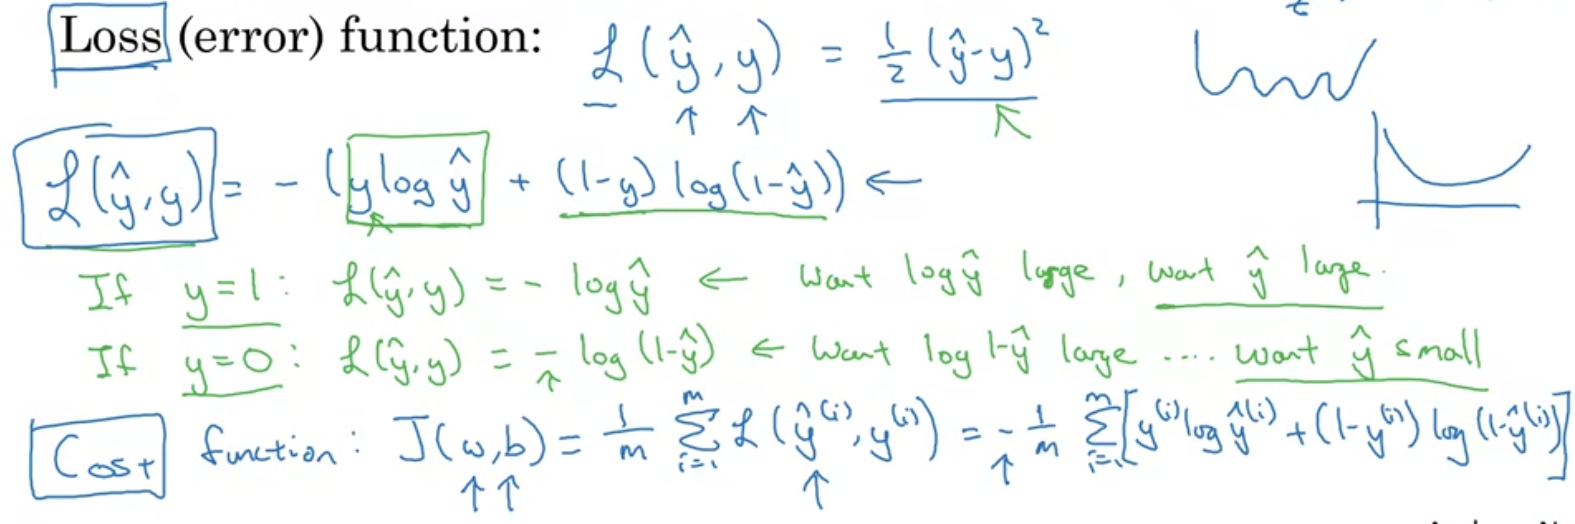 Loss (error) function: ℒ(ŷ, y) = ½ (ŷ-y)²
ℒ(ŷ, y) = - (y log ŷ + (1-y) log(1-ŷ)) ←
If y=1: ℒ(ŷ, y) = - log ŷ ← Want log ŷ large, want ŷ large.
If y=0: ℒ(ŷ, y) = - log (1-ŷ) ← Want log 1-ŷ large .... want ŷ small
Cost function: J(w,b) = 1/m Σ_{i=1}^{m} ℒ(ŷ^{(i)}, y^{(i)}) = - 1/m Σ_{i=1}^{m} [y^{(i)} log ŷ^{(i)} + (1-y^{(i)}) log (1-ŷ^{(i)})]